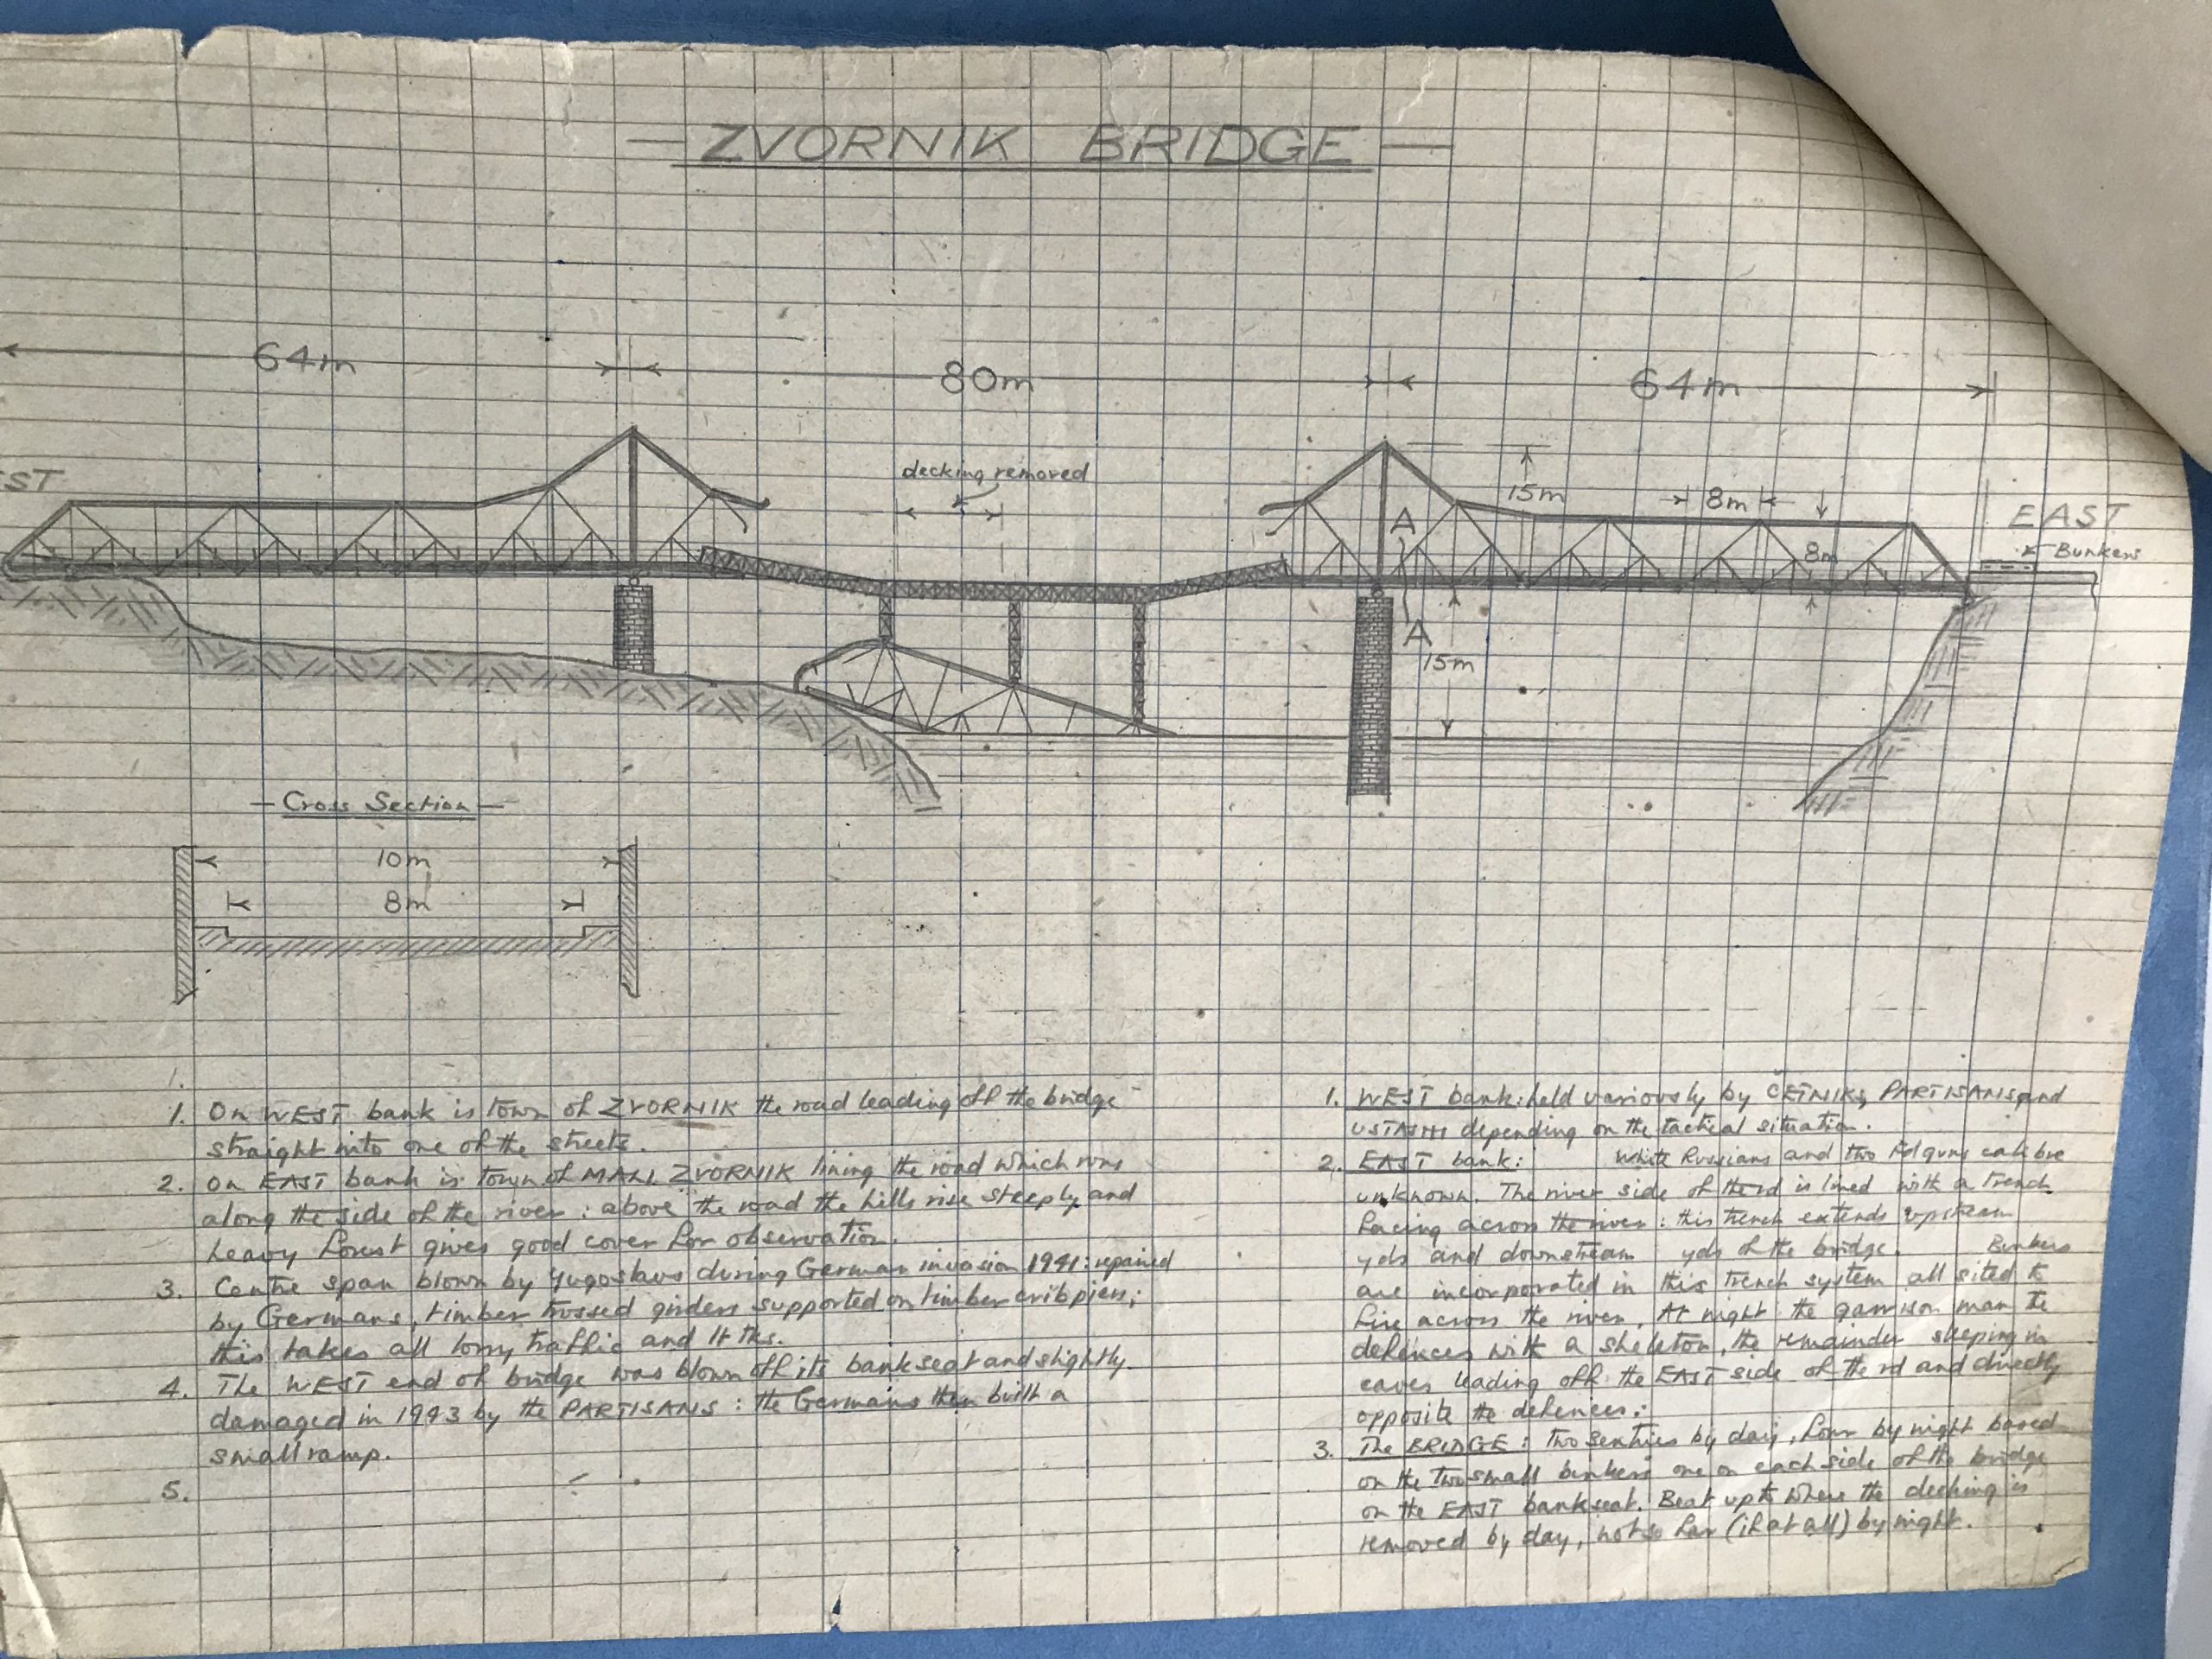 — ZVORNIK BRIDGE —
64m
80m
64m
EST
decking removed
15m
8m
EAST
Bunkers
8m
A
A
15m
— Cross Section —
10m
8m
1.
1. On WEST bank is town of ZVORNIK the road leading off the bridge
straight into one of the streets.
2. On EAST bank is town of MALI ZVORNIK lining the road which runs
along the side of the river : above the road the hills rise steeply and
heavy forest gives good cover for observation.
3. Centre span blown by Yugoslavs during German invasion 1941 : repaired
by Germans, timber trussed girders supported on timber crib piers;
this takes all lorry traffic and lt tks.
4. The WEST end of bridge was blown off its bankseat and slightly
damaged in 1943 by the PARTISANS : the Germans then built a
small ramp.
5.
1. WEST bank : held variously by ČETNIKS, PARTISANS and
USTASHI depending on the tactical situation.
2. EAST bank : White Russians and two Fd guns calibre
unknown. The river side of the rd is lined with a trench
facing across the river : this trench extends upstream
yds and downstream yds of the bridge. Bunkers
are incorporated in this trench system all sited to
fire across the river. At night the garrison man the
defences with a skeleton, the remainder sleeping in
caves leading off the EAST side of the rd and directly
opposite the defences :
3. The BRIDGE : two sentries by day, four by night based
on the two small bunkers one on each side of the bridge
on the EAST bankseat. Beat up to where the decking is
removed by day, not so far (if at all) by night.